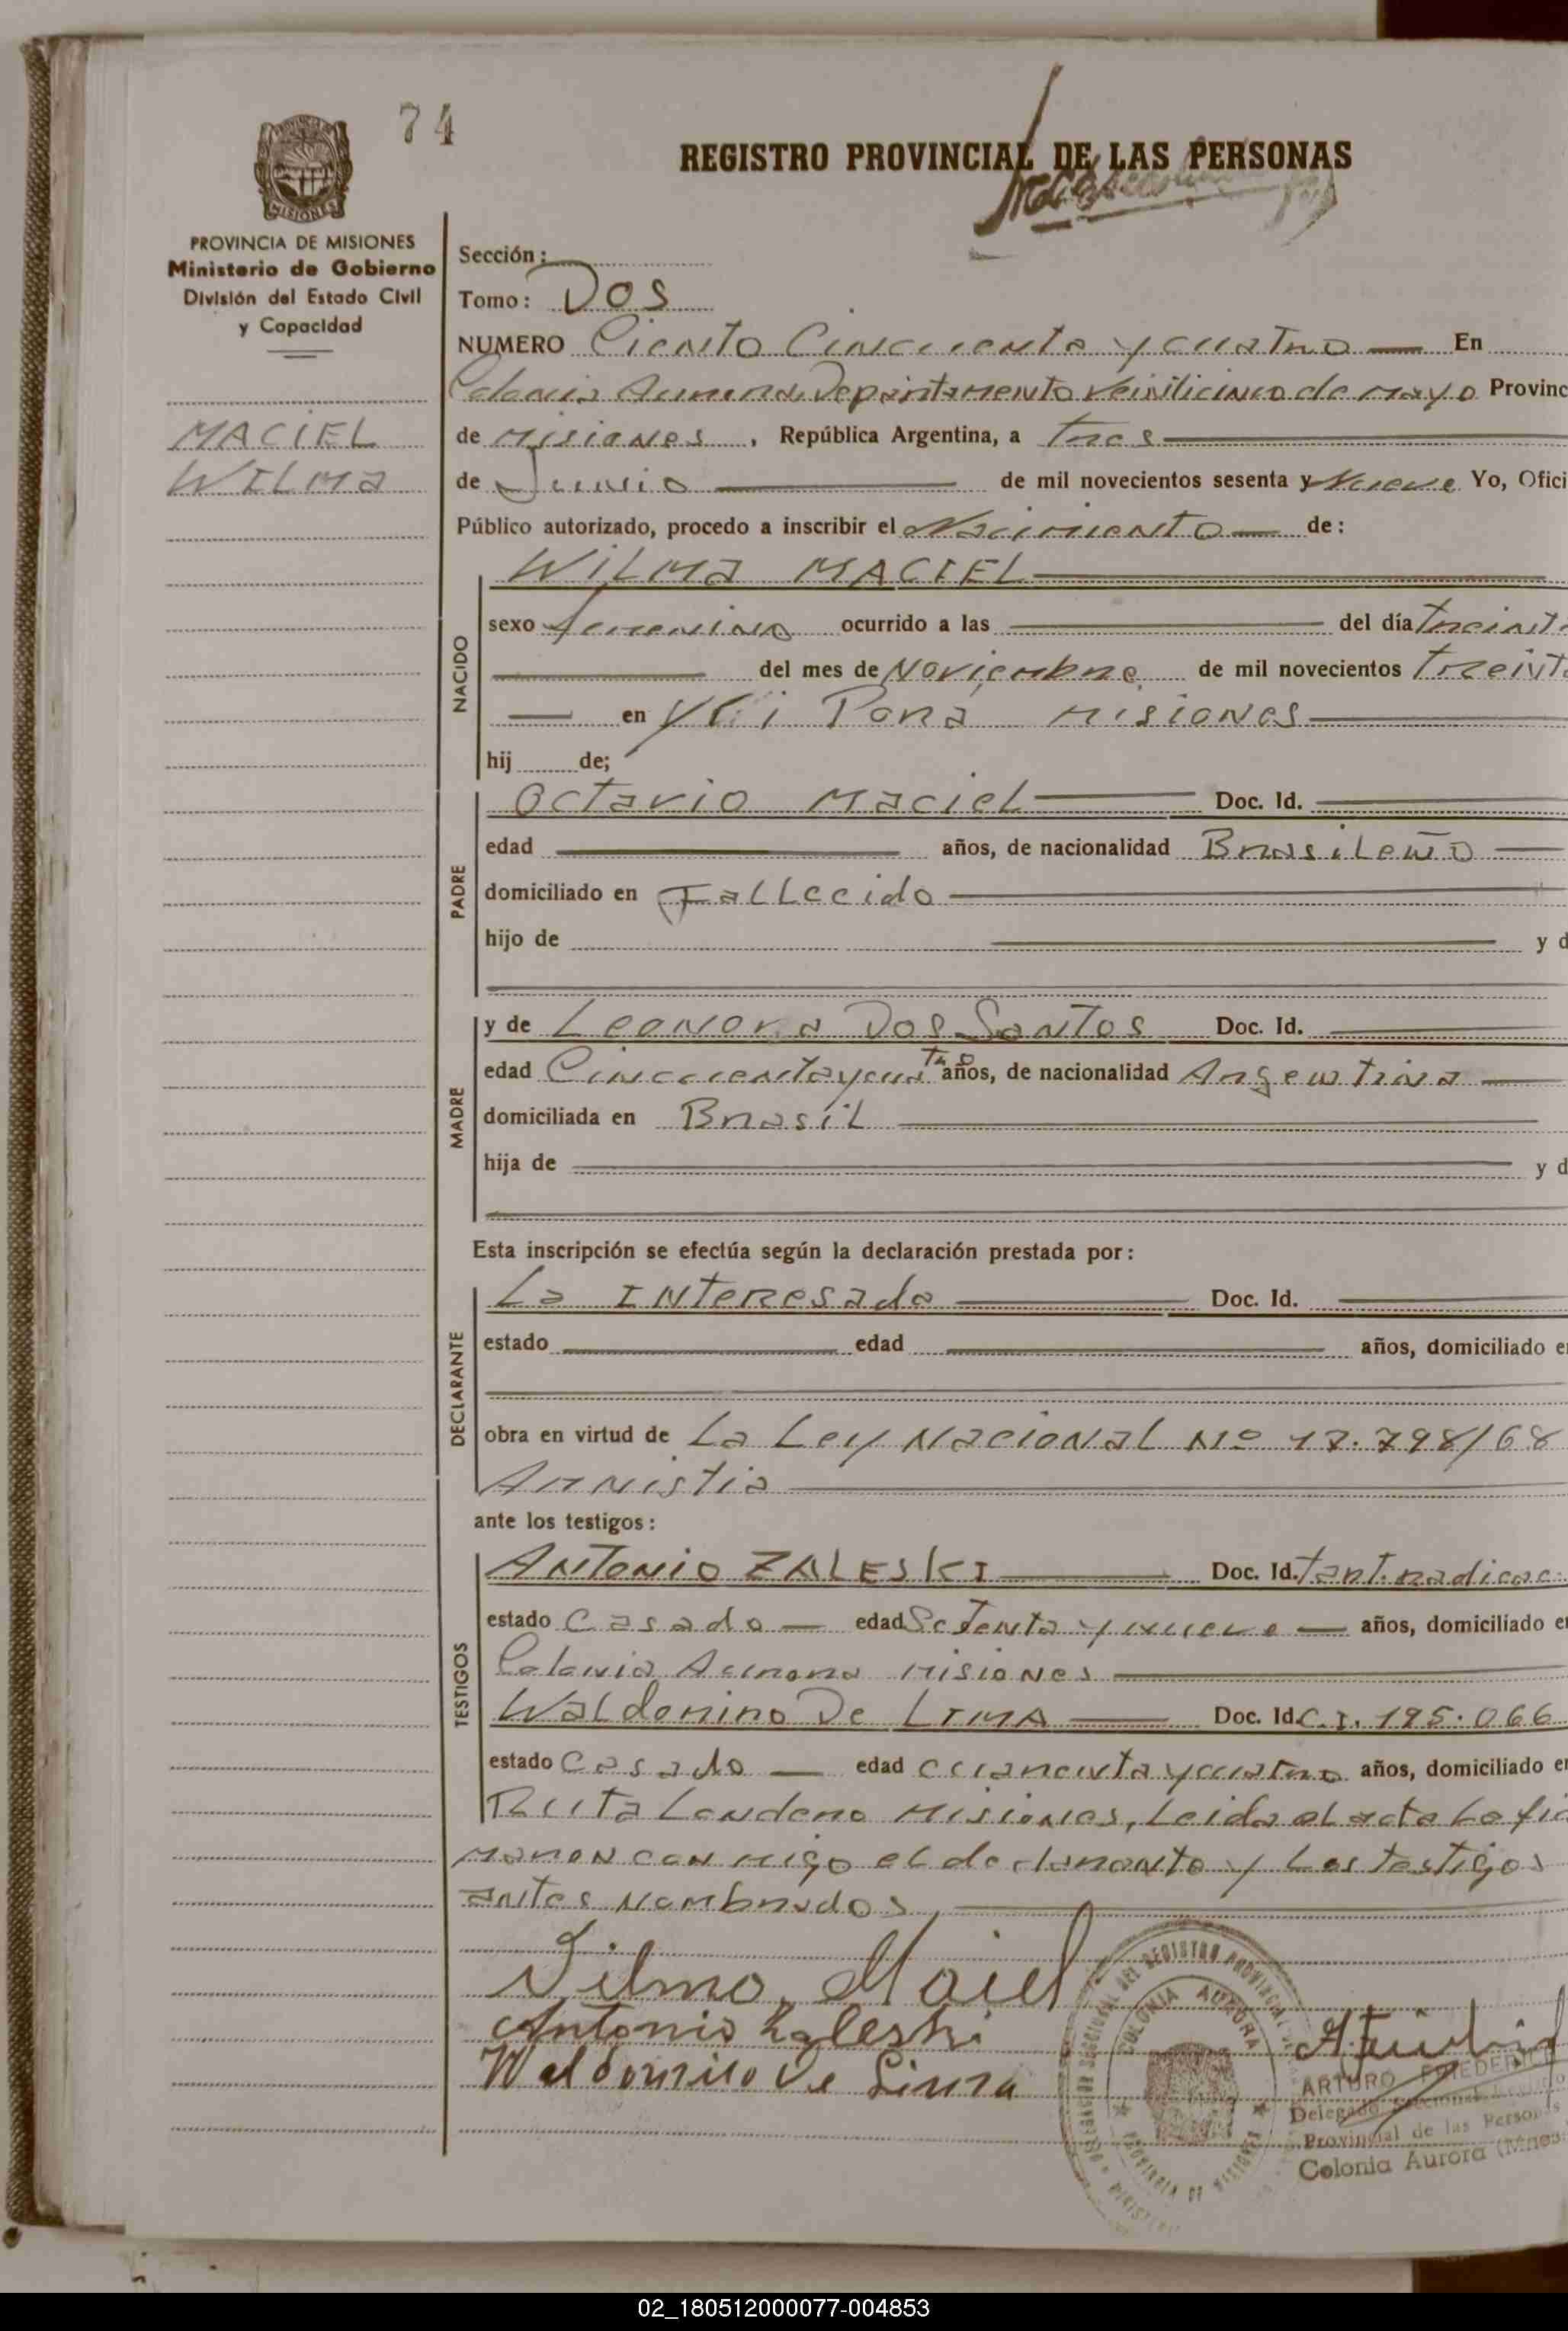 74
REGISTRO PROVINCIAL DE LAS PERSONAS
MISIONES
PROVINCIA DE MISIONES
Ministerio de Gobierno
División del Estado Civil
y Capacidad
MACIEL
WILMA
Sección:
Tomo: Dos
NUMERO Ciento Cincuenta y cuatro En
Colonia Aurora, Departamento Veinticinco de Mayo Provinc
de Misiones, República Argentina, a tres
de Junio de mil novecientos sesenta y Nueve Yo, Ofici
Público autorizado, procedo a inscribir el Nacimiento de:
NACIDO
WILMA MACIEL
sexo femenino ocurrido a las del día treinta
del mes de Noviembre de mil novecientos treinta
en Misiones
hij de;
PADRE
Octavio Maciel Doc. Id.
edad años, de nacionalidad Brasileño
domiciliado en Fallecido
hijo de y d
MADRE
y de Leonora Dos Santos Doc. Id.
edad Cincuentaycuatro años, de nacionalidad Argentina
domiciliada en Brasil
hija de y d
Esta inscripción se efectúa según la declaración prestada por:
DECLARANTE
La Interesada Doc. Id.
estado edad años, domiciliado e
obra en virtud de La Ley Nacional Nº 17.798/68
Amnistia
ante los testigos:
TESTIGOS
Antonio ZALESKI Doc. Id.
estado Casado edad Setenta y nueve años, domiciliado e
Colonia Aurora Misiones
Waldomiro De LIMA Doc. Id. C.I. 195.066
estado Casado edad cuarenta y cuatro años, domiciliado e
Ruta Londero Misiones, Leida el acta La fir
maron con migo el declarante y Los testigos
antes nombrados
Antonio Zaleski
Waldomiro de Lima
COLONIA AURORA
PROVINCIA DE MISIONES
ARTURO
Delegado Seccional Registro
Provincial de las Personas
Colonia Aurora (Mnes.
02_180512000077-004853